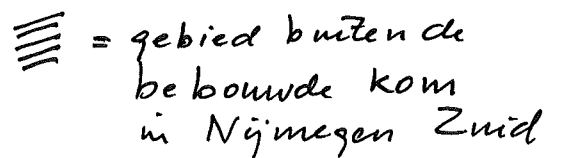 = gebied buiten de
bebouwde kom
in Nijmegen Zuid